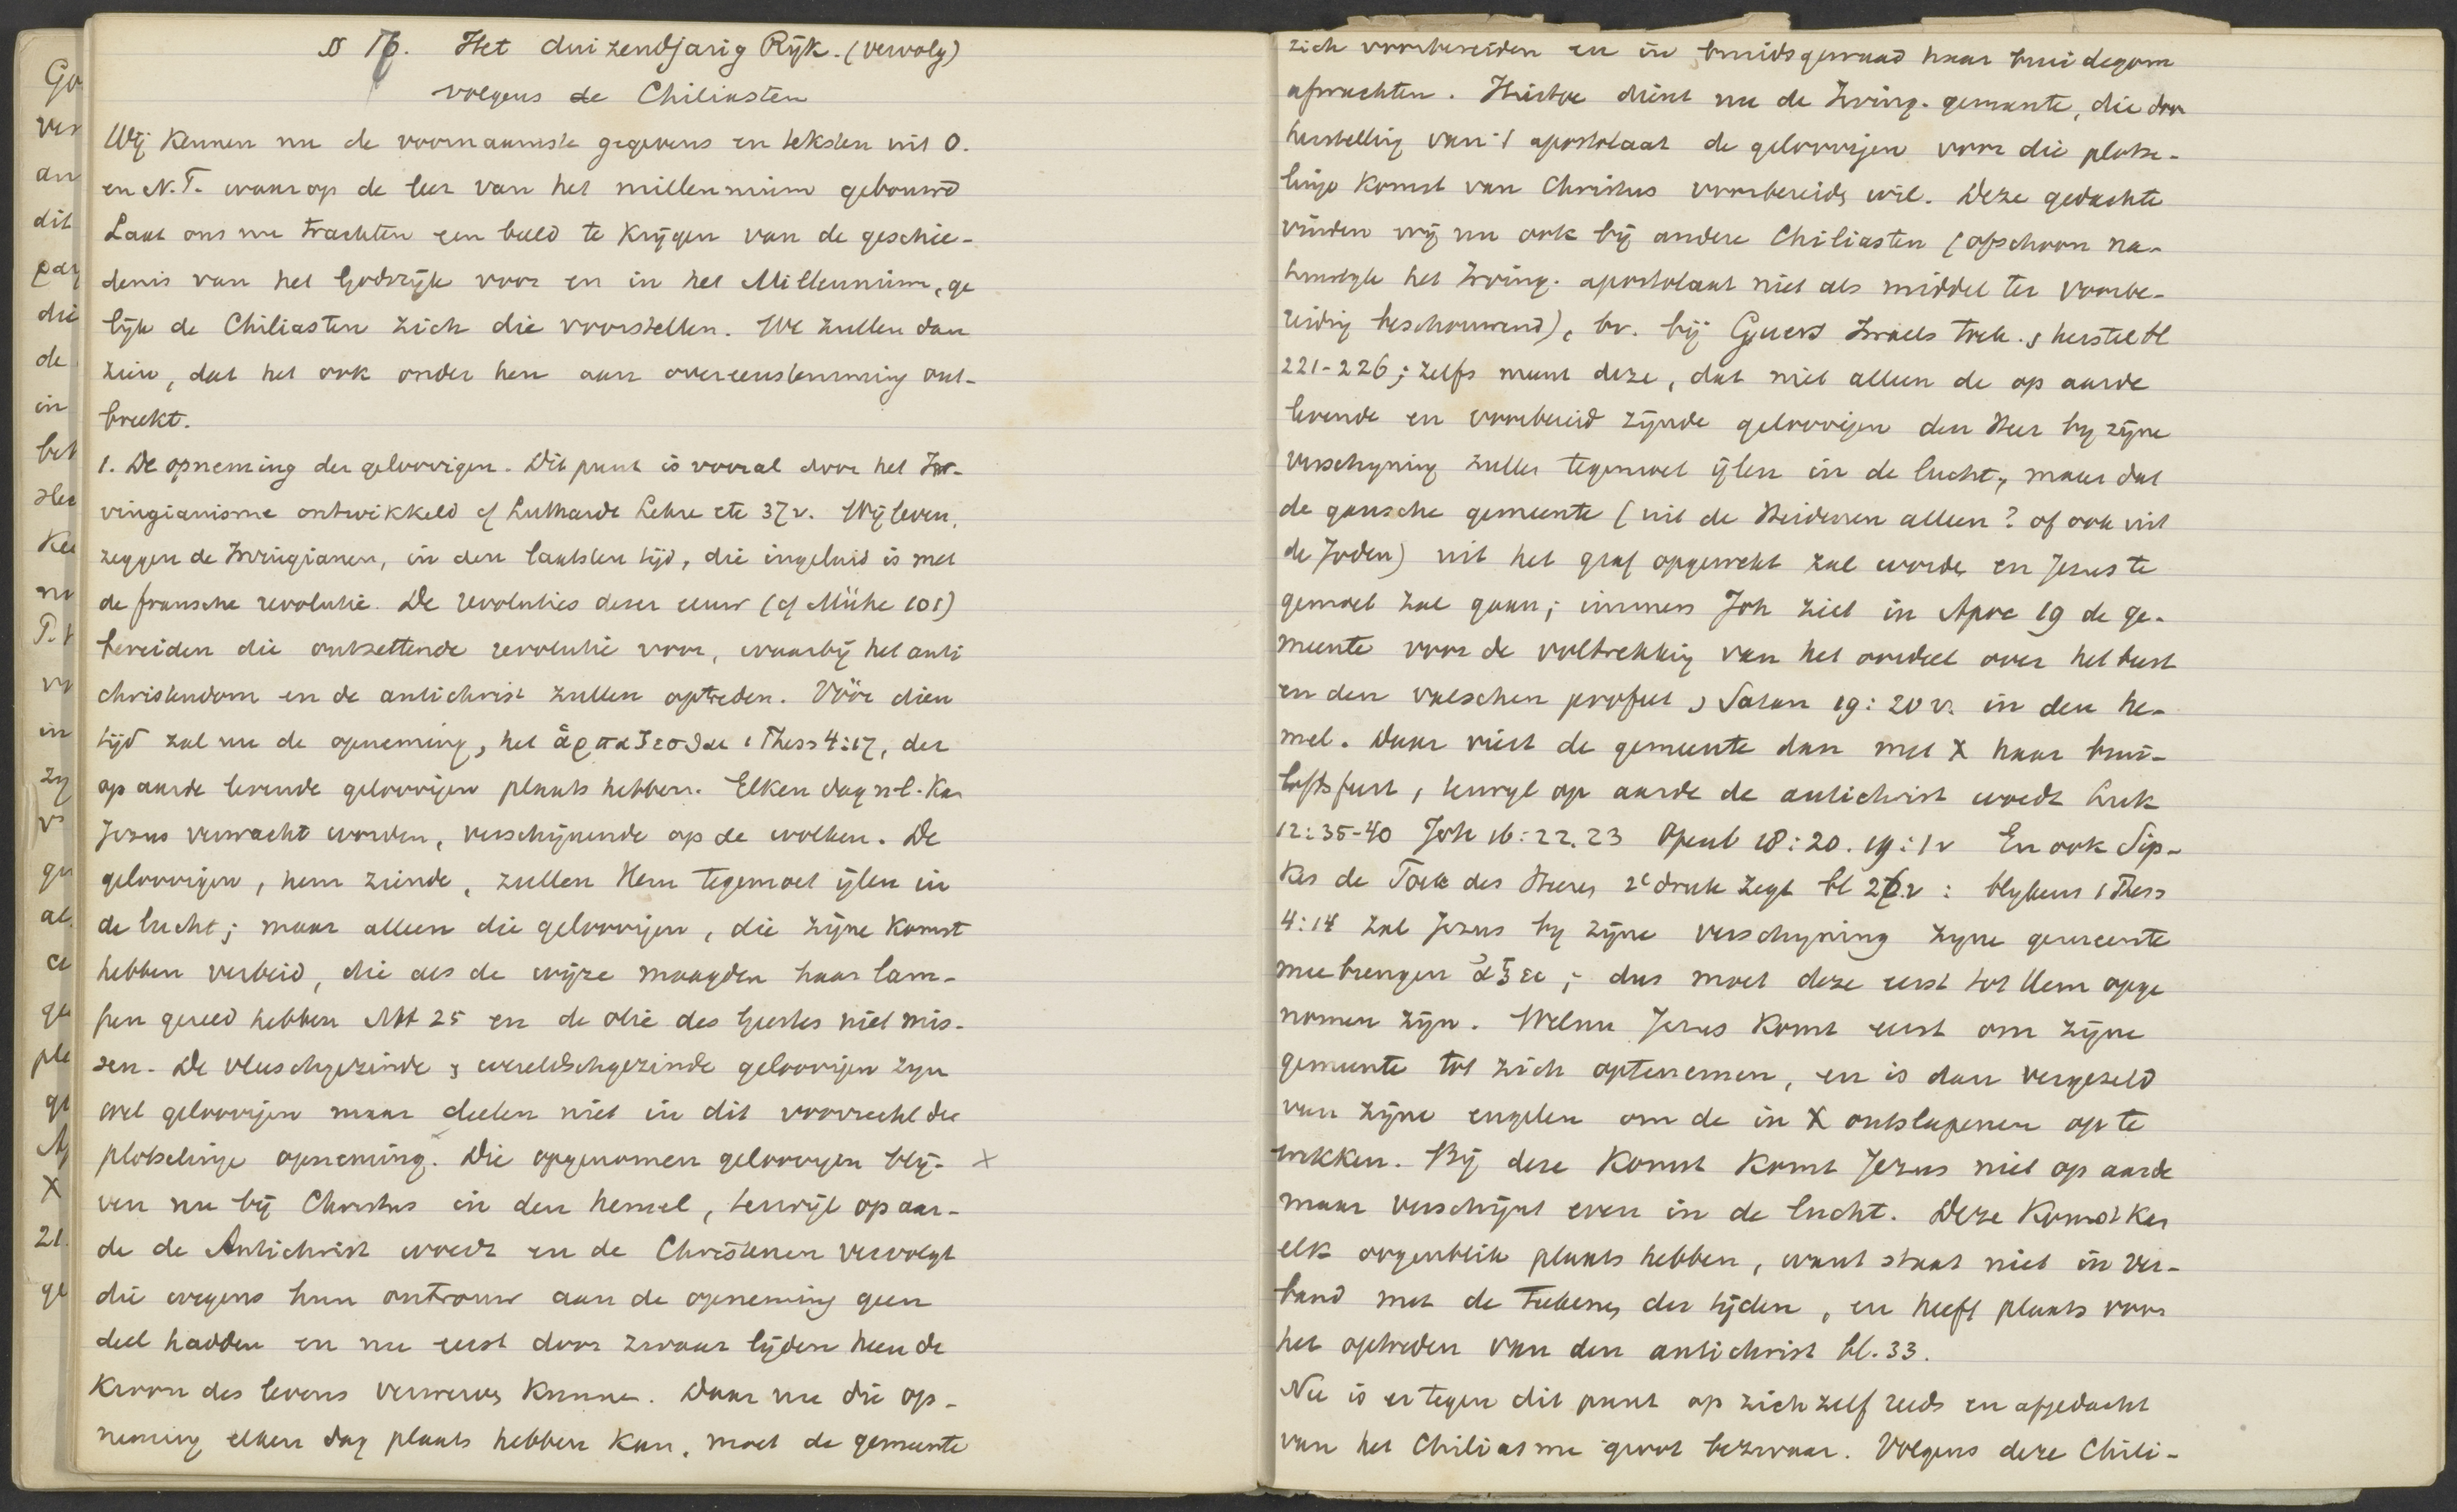 § 16. Het duizendjarig Rijk. (vervolg)
volgens de Chiliasten
Wij kennen nu de voornaamste gegevens en teksten uit O.
en N.T. waarop de leer van het millennium gebouwd
Laat ons nu trachten een beeld te krijgen van de geschie-
denis van het Godsrijk voor en in het Millennium, ge
lijk de Chiliasten zich die voorstellen. We zullen dan
zien, dat het ook onder hen aan overeenstemming ont-
breekt.
1. De opneming der geloovigen. Dit punt is vooral door het Ir-
vingianisme ontwikkeld cf Luthardt Lehre etc 37v. Wij leven,
zeggen de Irvingianen, in den laatsten tijd, die ingeluid is met
de fransche revolutie. De revoluties dezer eeuw (cf Mühe 101)
bereiden die ontzettende revolutie voor, waarbij het anti
christendom en de antichrist zullen optreden. Vóór dien
tijd zal nu de opneming, het ἁρπαζεσθαι 1 Thess 4:17, der
op aarde levende geloovigen plaats hebben. Elken dag n.l. kan
Jezus verwacht worden, verschijnende op de wolken. De
geloovigen, hem ziende, zullen Hem tegemoet ijlen in
de lucht; maar alleen die geloovigen, die zijne komst
hebben verbeid, die als de wijze maagden haar lam-
pen gereed hebben Mt 25 en de olie des Geestes niet mis-
sen. De vleeschgezinde & wereldschgezinde geloovigen zijn
wel geloovigen maar deelen niet in dit voorrecht der
plotselinge opneming. Die opgenomen geloovigen blij- x
ven nu bij Christus in den hemel, terwijl op aar-
de de Antichrist woedt en de Christenen vervolgt
die wegens hun ontrouw aan de opneming geen
deel hadden en nu eerst door zwaar lijden heen de
kroon des levens verwerven kunnen. Daar nu die op-
neming elken dag plaats hebben kan, moet de gemeente
zich voorbereiden en in bruidsgewaad haar bruidegom
afwachten. Hiertoe dient nu de Irving. gemeente, die door
herstelling van 't apostolaat de geloovigen voor die plotse-
linge komst van Christus voorbereiden wil. Deze gedachte
vinden wij nu ook bij andere Chiliasten (ofschoon na-
tuurlijk het Irving. apostolaat niet als middel ter voorbe-
reiding beschouwend), bv. bij Guers Israels toek. & herstel bl
221-226; zelfs meent deze, dat niet alleen de op aarde
levende en voorbereid zijnde geloovigen den Heer bij zijne
verschijning zullen tegemoet ijlen in de lucht, maar dat
de gansche gemeente (uit de Heidenen alleen? of ook uit
de Joden) uit het graf opgewekt zal worden en Jezus te
gemoet zal gaan; immers Joh ziet in Apoc 19 de ge-
meente voor de voltrekking van het oordeel over het beest
en den valschen profeet & Satan 19:20v. in den he-
mel. Daar viert de gemeente dan met X haar brui-
loftsfeest, terwijl op aarde de antichrist woedt Luk
12:35-40 Joh 16:22.23 Openb 18:20. 19:1v En ook Sip-
kes de Toek des Heeren 2e druk zegt bl 26v: blijkens 1 Thess
4:14 zal Jezus bij zijne verschijning zijne gemeente
meebrengen ἀξει; dus moet deze eerst tot Hem opge
nomen zijn. Welnu Jezus komt eerst om zijne
gemeente tot zich optenemen, en is dan vergezeld
van zijne engelen om de in X ontslapenen op te
wekken. Bij deze komst komt Jezus niet op aarde
maar verschijnt even in de lucht. Deze komst kan
elk oogenblik plaats hebben, want staat niet in ver-
band met de teekenen der tijden, en heeft plaats voor
het optreden van den antichrist bl. 33.
Nu is er tegen dit punt op zich zelf reeds en afgedacht
van het Chiliasme groot bezwaar. Volgens deze Chili-